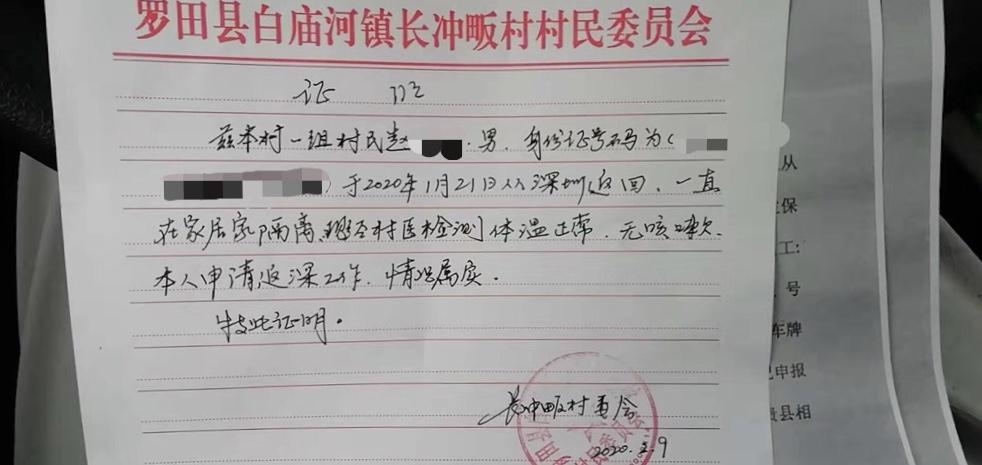 罗田县白庙河镇长冲畈村村民委员会
证 明
兹本村一组村民赵 男、身份证号码为(
)于2020年1月21日从深圳返回、一直
在家居家隔离,现经村医检测体温正常、无咳嗽、
本人申请返深工作、情况属实。
特此证明。
长冲畈村委会
2020.2.9
从
保
工:
号
车牌
申报
县相